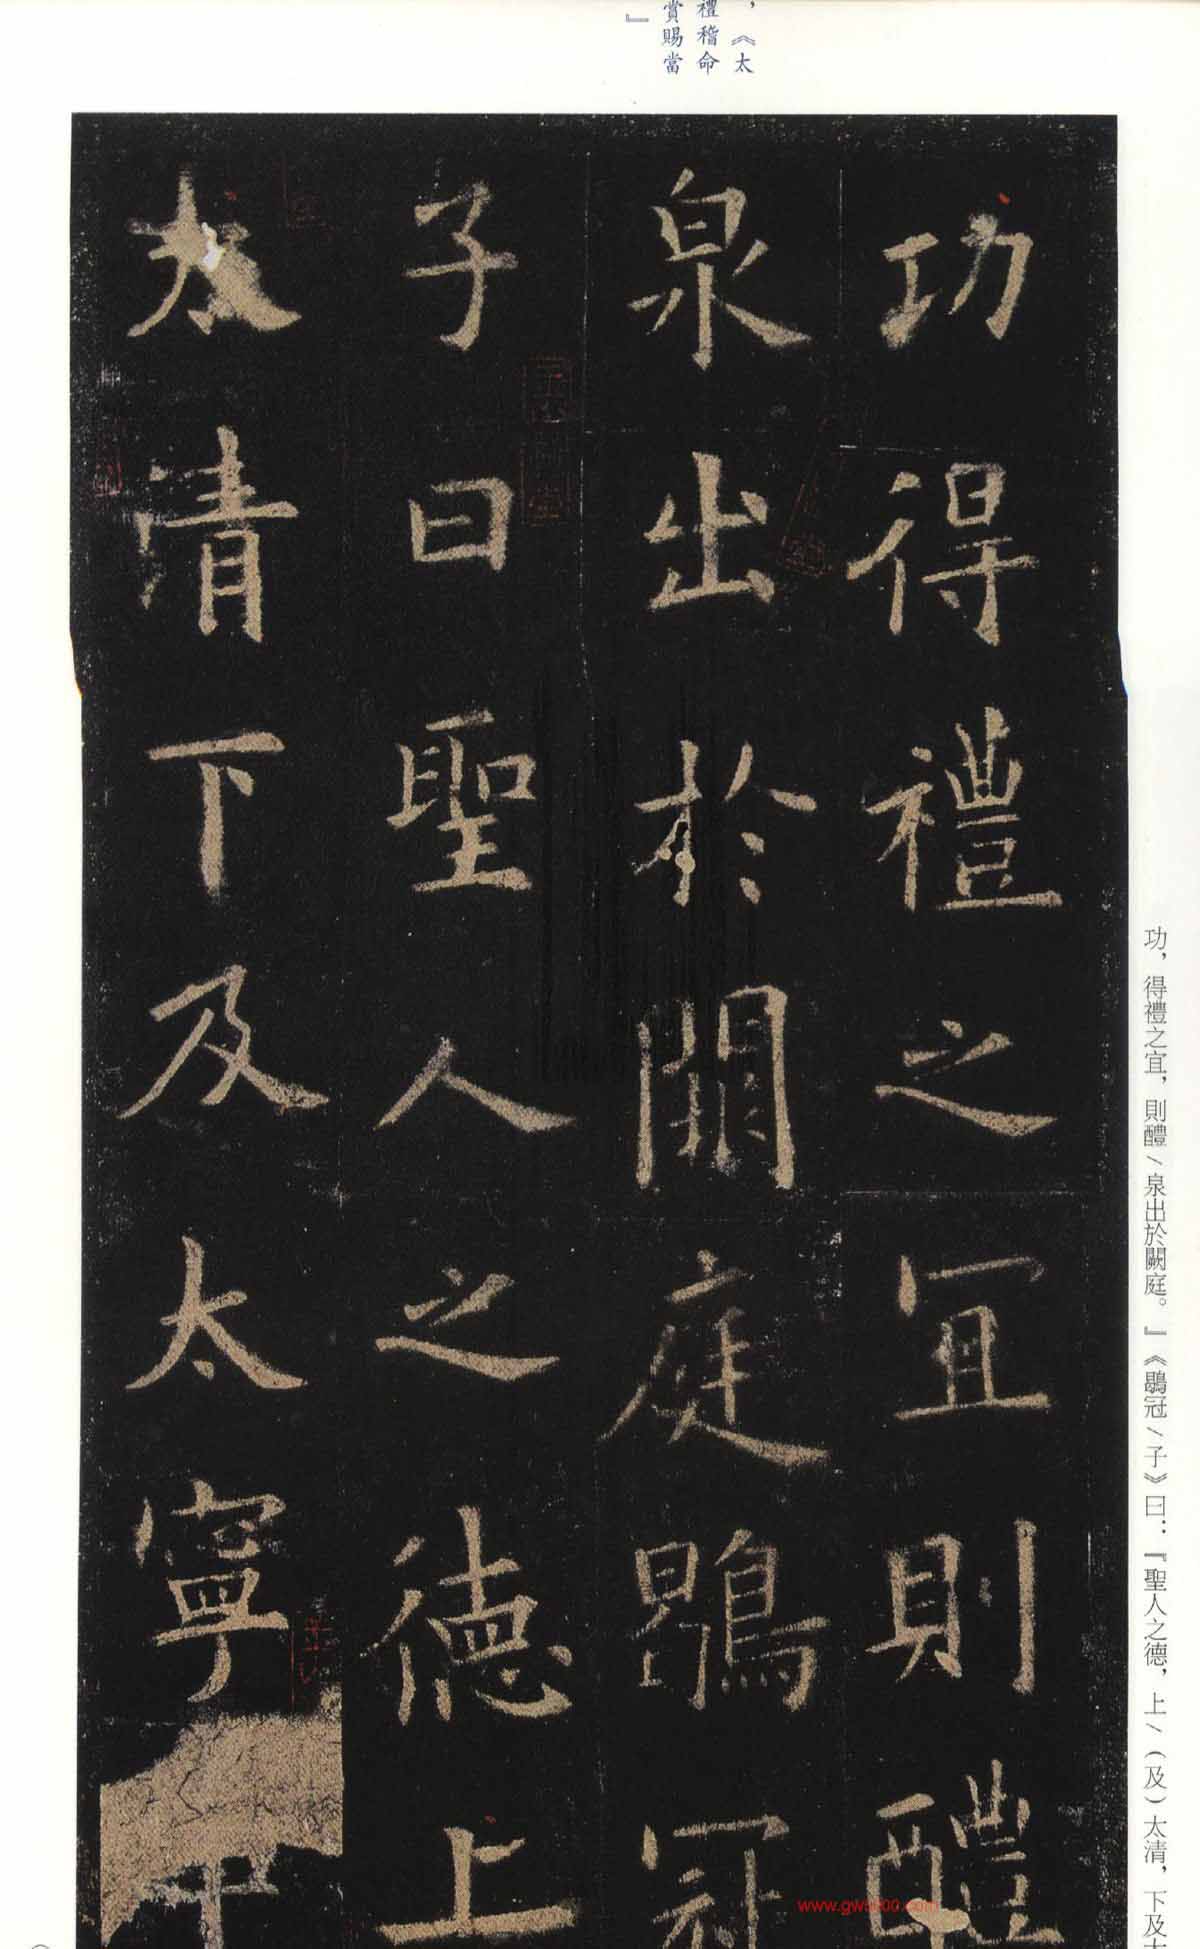 ，《太
禮稽命
賞賜當
』
功得禮之宜則醴
泉出於闕庭鶡冠
子曰聖人之德上
太清下及太寧中
功，得禮之宜，則醴／泉出於闕庭。』《鶡冠／子》曰：『聖人之德，上／（及）太清，下及太
www.gws000.com